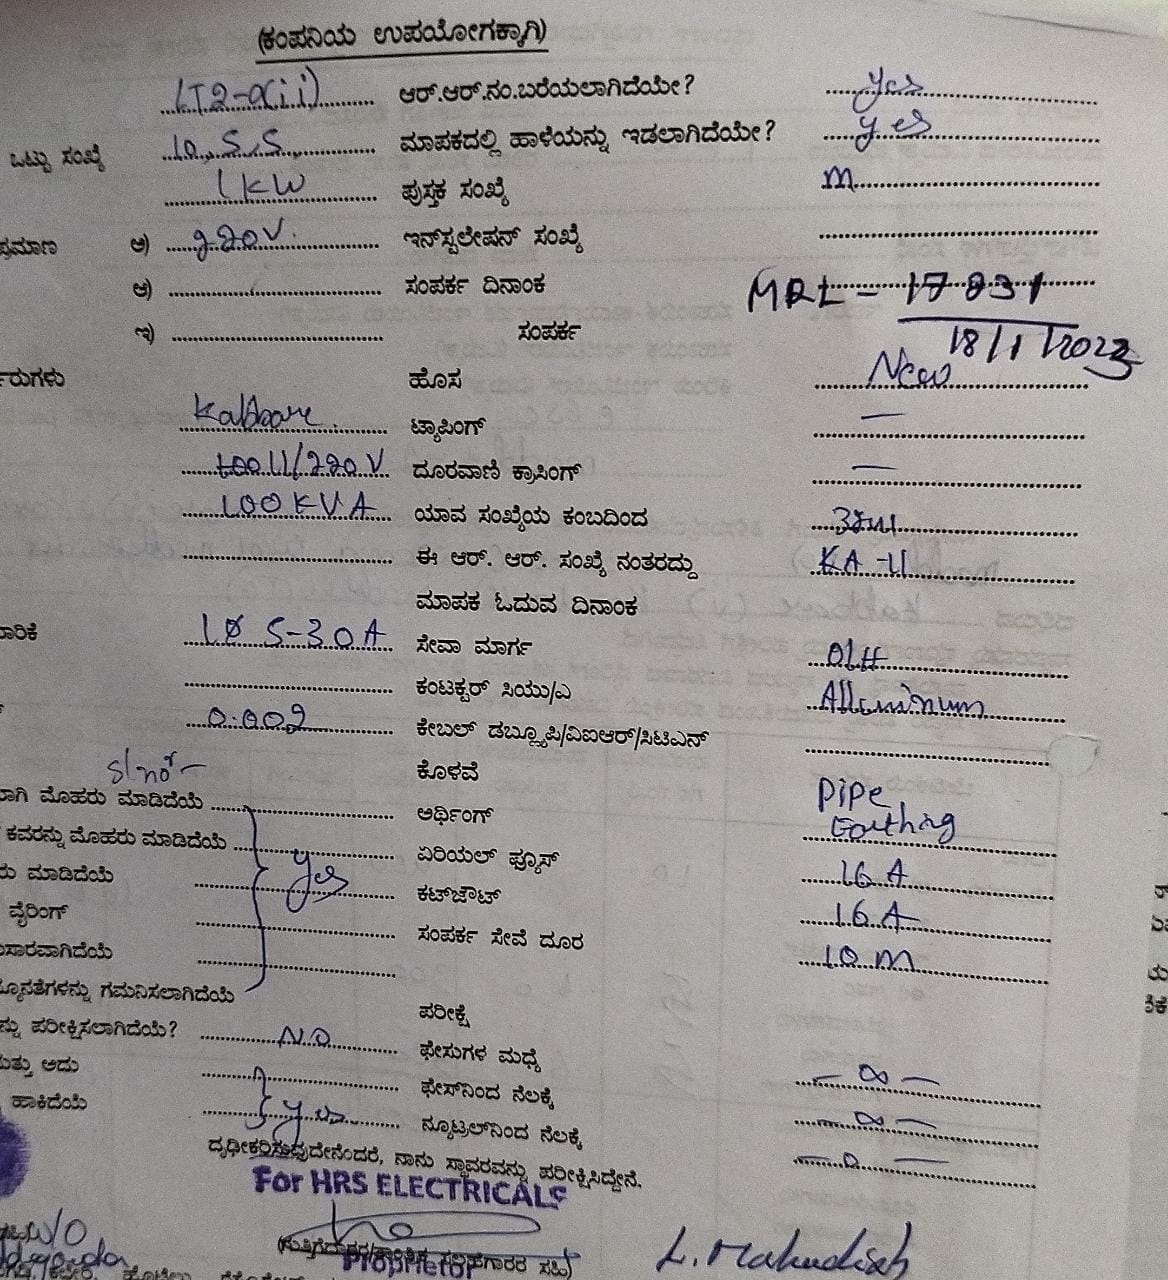 (ಕಂಪನಿಯ ಉಪಯೋಗಕ್ಕಾಗಿ)
LT2-a(ii) ಆರ್.ಆರ್.ನಂ.ಬರೆಯಲಾಗಿದೆಯೇ? yes
ಒಟ್ಟು ಸಂಖ್ಯೆ 10, S,S, ಮಾಪಕದಲ್ಲಿ ಹಾಳೆಯನ್ನು ಇಡಲಾಗಿದೆಯೇ? yes
1KW ಪುಸ್ತಕ ಸಂಖ್ಯೆ m
ಪ್ರಮಾಣ ಅ) 220V. ಇನ್‌ಸ್ಟಲೇಷನ್ ಸಂಖ್ಯೆ
ಆ) ಸಂಪರ್ಕ ದಿನಾಂಕ MRL - 17831
ಇ) ಸಂಪರ್ಕ 18/1/2023
ರುಗಳು ಹೊಸ New
Kabbare. ಟ್ಯಾಪಿಂಗ್ —
11/220V ದೂರವಾಣಿ ಕ್ರಾಸಿಂಗ್ —
100KVA ಯಾವ ಸಂಖ್ಯೆಯ ಕಂಬದಿಂದ
ಈ ಆರ್. ಆರ್. ಸಂಖ್ಯೆ ನಂತರದ್ದು KA-11
ಮಾಪಕ ಓದುವ ದಿನಾಂಕ
ಾರಿಕೆ 1Ø 5-30A ಸೇವಾ ಮಾರ್ಗ O/H
ಕಂಟಕ್ಟರ್ ಸಿಯು/ಎ Alluminum
0.002 ಕೇಬಲ್ ಡಬ್ಲ್ಯೂಪಿ/ವಿಐಆರ್/ಸಿಟಿಎನ್
sl no - ಕೊಳವೆ pipe
ಾಗಿ ಮೊಹರು ಮಾಡಿದೆಯೆ ಅರ್ಥಿಂಗ್ Earthing
ಕವರನ್ನು ಮೊಹರು ಮಾಡಿದೆಯೆ ಏರಿಯಲ್ ಫ್ಯೂಸ್ 16A
ರು ಮಾಡಿದೆಯೆ yes ಕಟ್‌ಔಟ್ 16A
ವೈರಿಂಗ್ ಸಂಪರ್ಕ ಸೇವೆ ದೂರ 10m
ುಸಾರವಾಗಿದೆಯೆ
್ಯೂನತೆಗಳನ್ನು ಗಮನಿಸಲಾಗಿದೆಯೆ ಪರೀಕ್ಷೆ
ನ್ನು ಪರೀಕ್ಷಿಸಲಾಗಿದೆಯೆ? NO ಫೇಸುಗಳ ಮಧ್ಯೆ — ∞ —
ಮತ್ತು ಅದು ಫೇಸ್‌ನಿಂದ ನೆಲಕ್ಕೆ — ∞ —
ಹಾಕಿದೆಯೆ yes ನ್ಯೂಟ್ರಲ್‌ನಿಂದ ನೆಲಕ್ಕೆ — 0 —
ದೃಢೀಕರಿಸುವುದೇನೆಂದರೆ, ನಾನು ಸ್ಥಾವರವನ್ನು ಪರೀಕ್ಷಿಸಿದ್ದೇನೆ.
For HRS ELECTRICALS
Proprietor